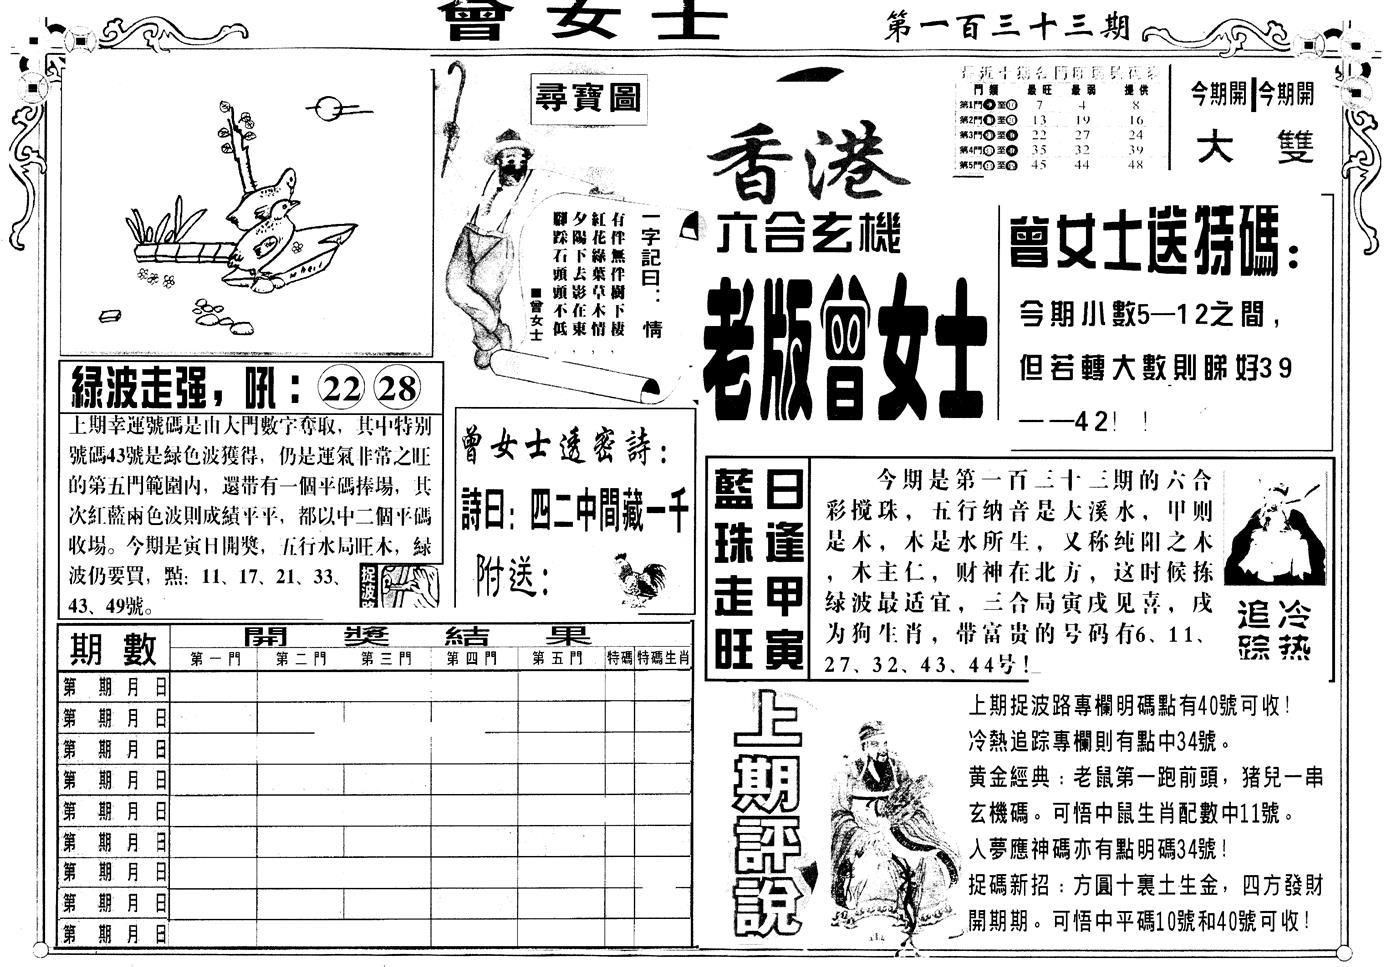 曾女士
第一百三十三期
尋寶圖
一字記曰：情
有伴無伴樹下棲，
紅花綠葉草木情，
夕陽下去影在東，
腳踩石頭頭不低
■曾女士
香港
六合玄機
老版曾女士
門類 最旺 最弱 提供
第1門 至 7 4 8
第2門 至 13 19 16
第3門 至 22 27 24
第4門 至 35 32 39
第5門 至 45 44 48
今期開 今期開
大 雙
曾女士送特碼：
今期小數5—12之間，
但若轉大數則睇好39
——42！！
綠波走强，吼：22 28
上期幸運號碼是由大門數字奪取，其中特別
號碼43號是綠色波獲得，仍是運氣非常之旺
的第五門範圍内，還帶有一個平碼捧場，其
次紅藍兩色波則成績平平，都以中二個平碼
收場。今期是寅日開獎，五行水局旺木，綠
波仍要買，點：11、17、21、33、
43、49號。
捉波
曾女士透密詩：
詩曰：四二中間藏一千
附送：
藍珠走旺
日逢甲寅
今期是第一百三十三期的六合
彩搅珠，五行纳音是大溪水，甲则
是木，木是水所生，又称纯阳之木
，木主仁，财神在北方，这时候拣
绿波最适宜，三合局寅戌见喜，戌
为狗生肖，带富贵的号码有6、11、
27、32、43、44号！
冷热
追踪
期數 開獎結果
第一門 第二門 第三門 第四門 第五門 特碼 特碼生肖
第 期 月 日
第 期 月 日
第 期 月 日
第 期 月 日
第 期 月 日
第 期 月 日
第 期 月 日
第 期 月 日
第 期 月 日
上期評說
上期捉波路專欄明碼點有40號可收！
冷熱追踪專欄則有點中34號。
黄金經典：老鼠第一跑前頭，猪兒一串
玄機碼。可悟中鼠生肖配數中11號。
入夢應神碼亦有點明碼34號！
捉碼新招：方圓十裏土生金，四方發財
開期期。可悟中平碼10號和40號可收！